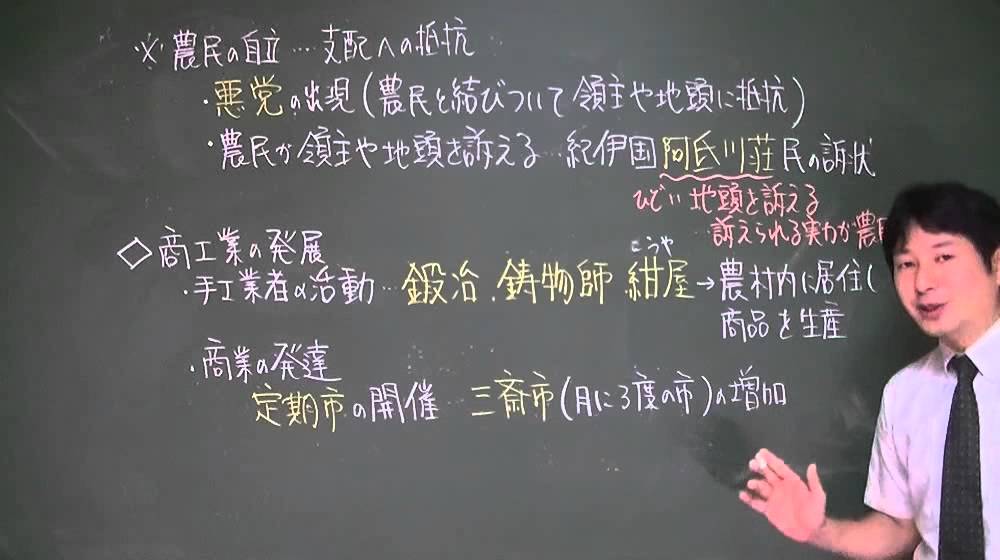 ※農民の自立…支配への抵抗
・悪党の出現(農民と結びついて領主や地頭に抵抗)
・農民が領主や地頭を訴える…紀伊国阿氐川荘民の訴状
ひどい地頭を訴える
訴えられる実力が農民
◇商工業の発展
・手工業者の活動…鍛冶、鋳物師 紺屋→農村内に居住し
こうや
商品を生産
・商業の発達
定期市の開催 三斎市(月に3度の市)の増加